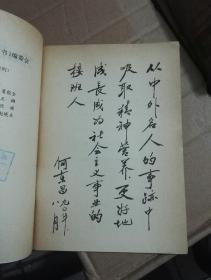 从中外名人的事迹中
吸取精神营养,更好地
成长成为社会主义事业的
接班人
何东昌
九〇年
八月